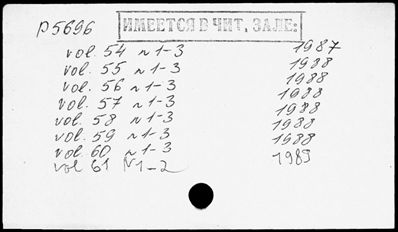 p5696 ИМЕЕТСЯ В ЧИТ. ЗАЛЕ:
vol. 54 n 1-3 1987
vol. 55 n 1-3 1988
vol. 56 n 1-3 1988
vol. 57 n 1-3 1988
vol. 58 n 1-3 1988
vol. 59 n 1-3 1988
vol. 60 n 1-3 1988
vol 61 N 1-2 1989